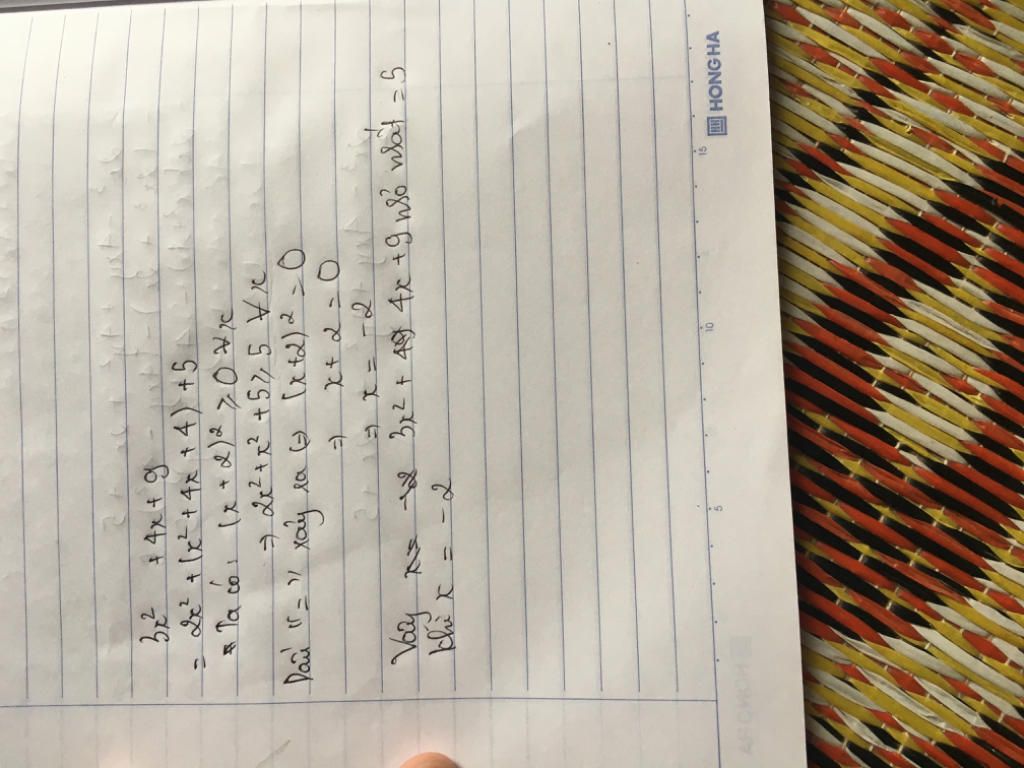 3x² + 4x + 9
= 2x² + (x² + 4x + 4) + 5
Ta có: (x + 2)² ⩾ 0 ∀x
⇒ 2x² + x² + 5 ⩾ 5 ∀x
Dấu "=" xảy ra (=) (x+2)² = 0
⇒ x + 2 = 0
⇒ x = -2
Vậy x = -2 3x² + 4x + 9 nhỏ nhất = 5
khi x = -2
HONG HA
5
10
15